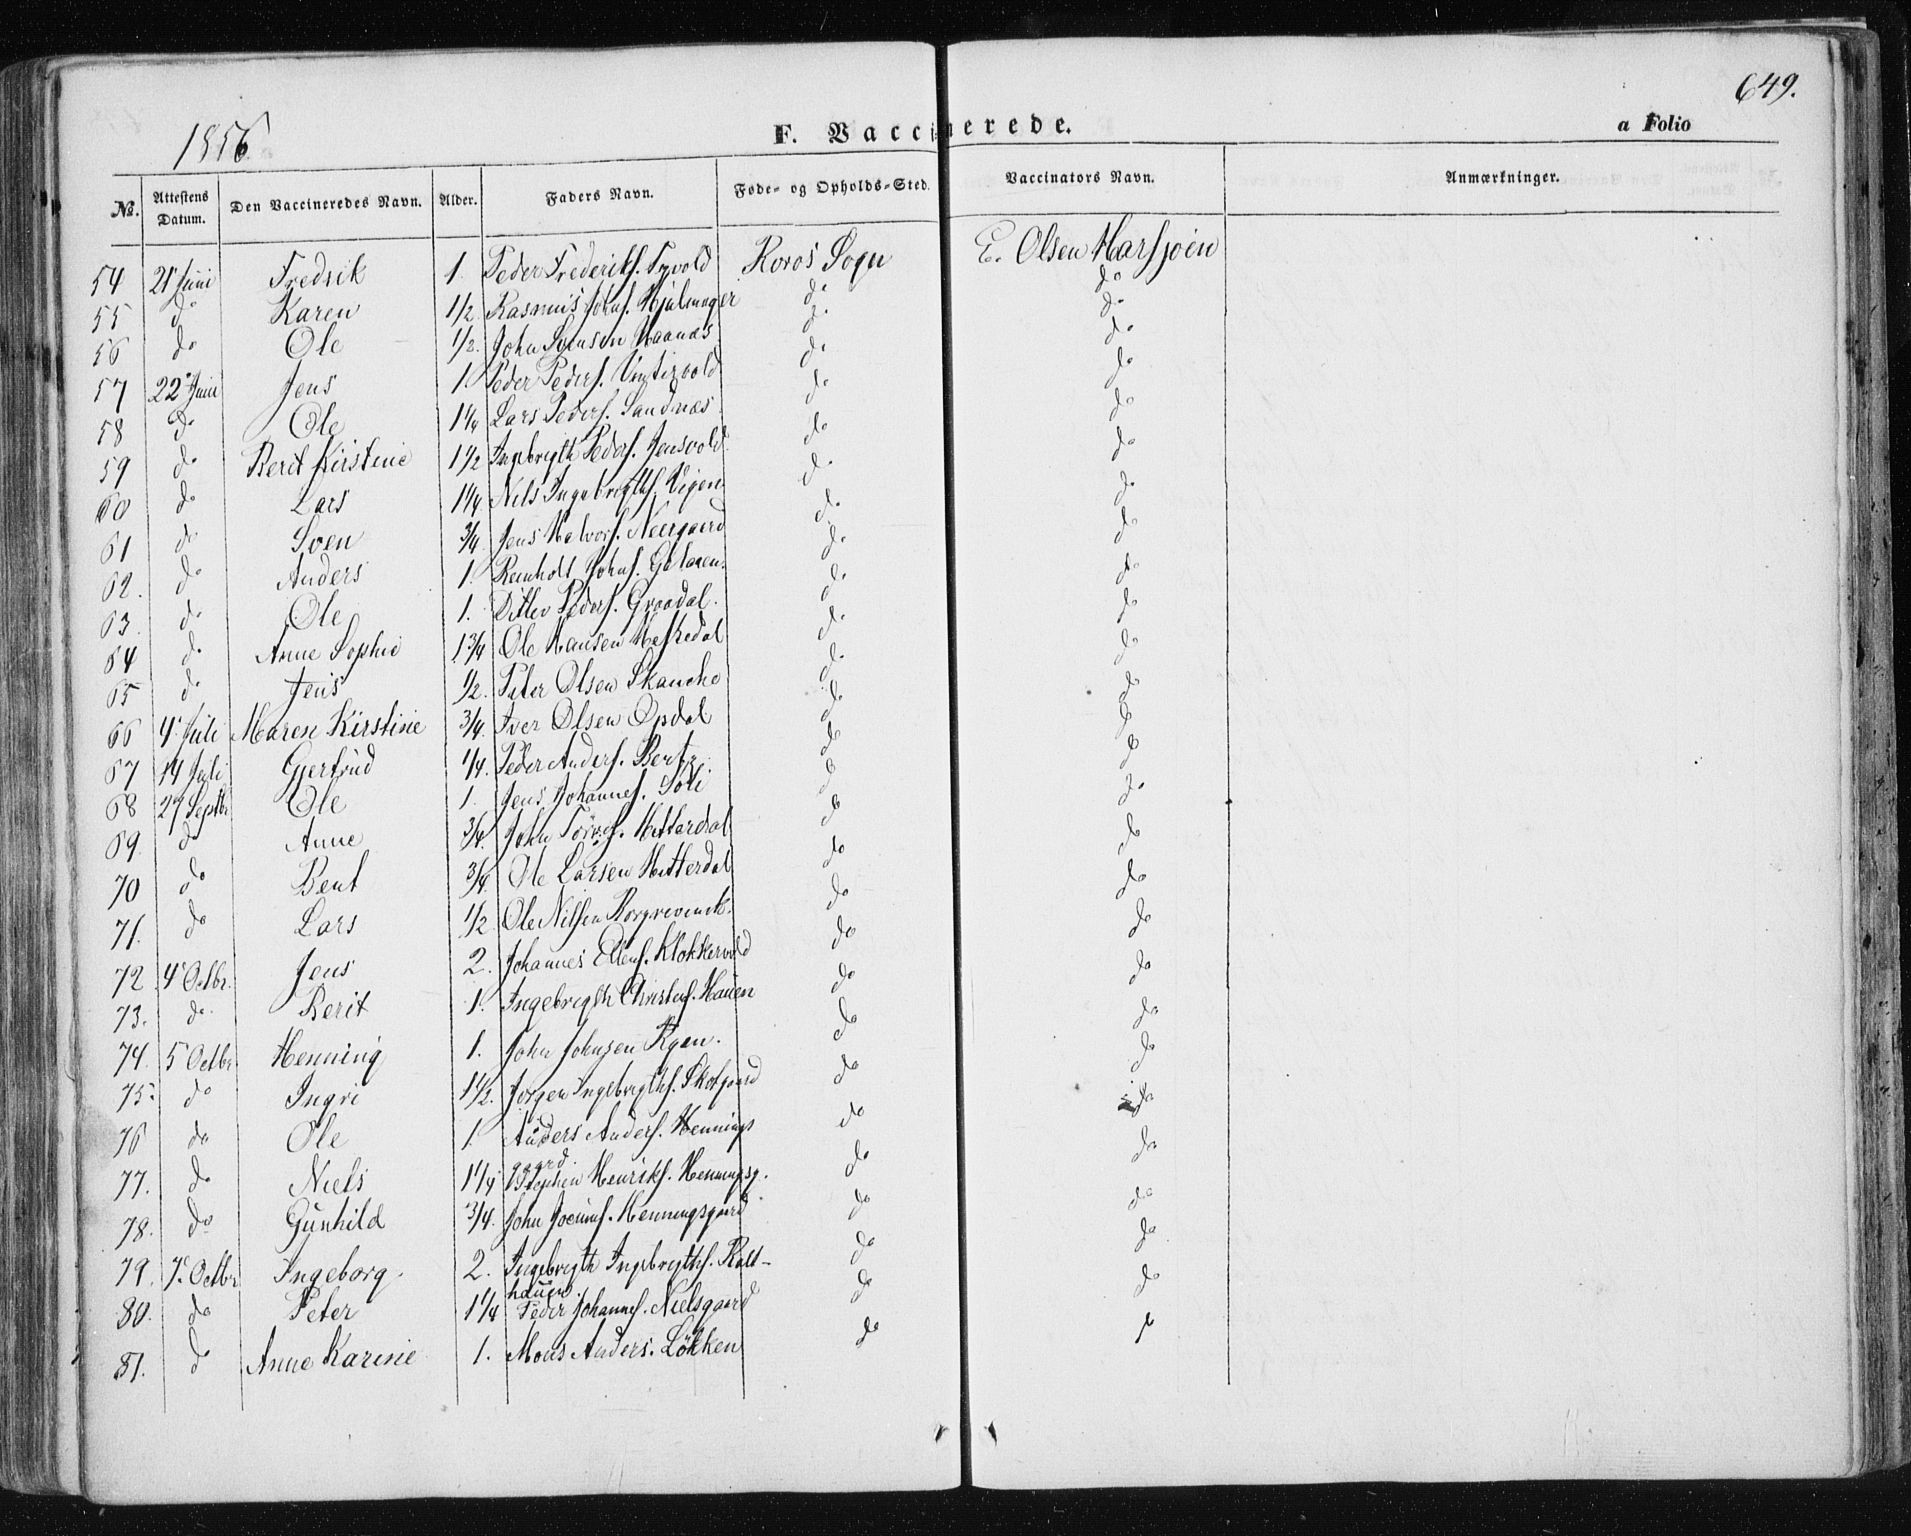 649.
1856
F. Vaccinerede.
a Folio
No. Attestens Datum. Den Vaccineredes Navn. Alder. Faders Navn. Føde- og Opholds-Sted. Vaccinators Navn. Anmærkninger.
54 21 Juni Fredrik 1. Peder Frederiks. Tyvold Roros Sogn E. Olsen Harsjoen
55 do Karen 1/2. Rasmus Johns. Hjulmager do do
56 do Ole 1/2. John Svensen Haanæs do do
57 22 Juni Jens 1. Peder Peders. Vintervold do do
58 do Ole 1 1/4 Lars Peders. Sandnæs. do do
59 do Berit Kirstine 1 1/2 Ingebrigth Peders. Jensvold. do do
60 do Lars 1 1/4 Nils Ingebrigths. Vigen do do
61 do Sven 3/4. Jens Halvors. Neergaard do do
62. do Anders 1. Reinholt Johns. do do
63. do Ole 1. Ditlev Peders. Graadal. do do
64 do Anne Sophie 1 3/4 Ole Hansen do do
65 do Jens 1/2. Peter Olsen Skancke do do
66 4 Juli Maren Kirstine 3/4. Iver Olsen Opdal do do
67 14 Juli Gjertrud 1/4. Peder Anders. do do
68 27 Septbr Ole 1. Jens Johannes. Soli do do
69. do Anne 3/4. John Hitterdal do do
70 do Bent 3/4. Ole Larsen Hitterdal do do
71. do Lars 1/2 Ole Nilsen do do
72 4 Octbr. Jens 2. Johannes Ellens. Klokkervold do do
73. do. Berit 1. Ingebrigth Christens. Hauen do do
74. 5 Octbr. Henning 1. John Johnsen Ryen. do do
75 do Ingri 1 1/2. Jorgen Ingebrigths. Skotgaard do do
76 do Ole 1. Anders Anders. Hennings do do
gaard.
77. do Niels 1 1/4 Stephen Henriks. Henningsg. do do
78. do Gunhild 3/4. John Henningsgaard do do
79. 7 Octbr Ingeborg. 2. Ingebrigth Ingebrigths. Kald- do do
hauen.
80. do Peter 1 1/4 Peder Johannes. Nielsgaard do do
81. do Anne Karine 1. Mons Anders. Løkken do do